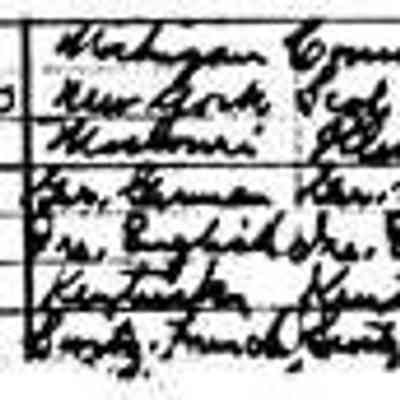 Michigan Conn
New York Scot
Missouri
Ger. German Ger.
Ire. English Ire. E
Kentucky Kent
Switz. French Switz